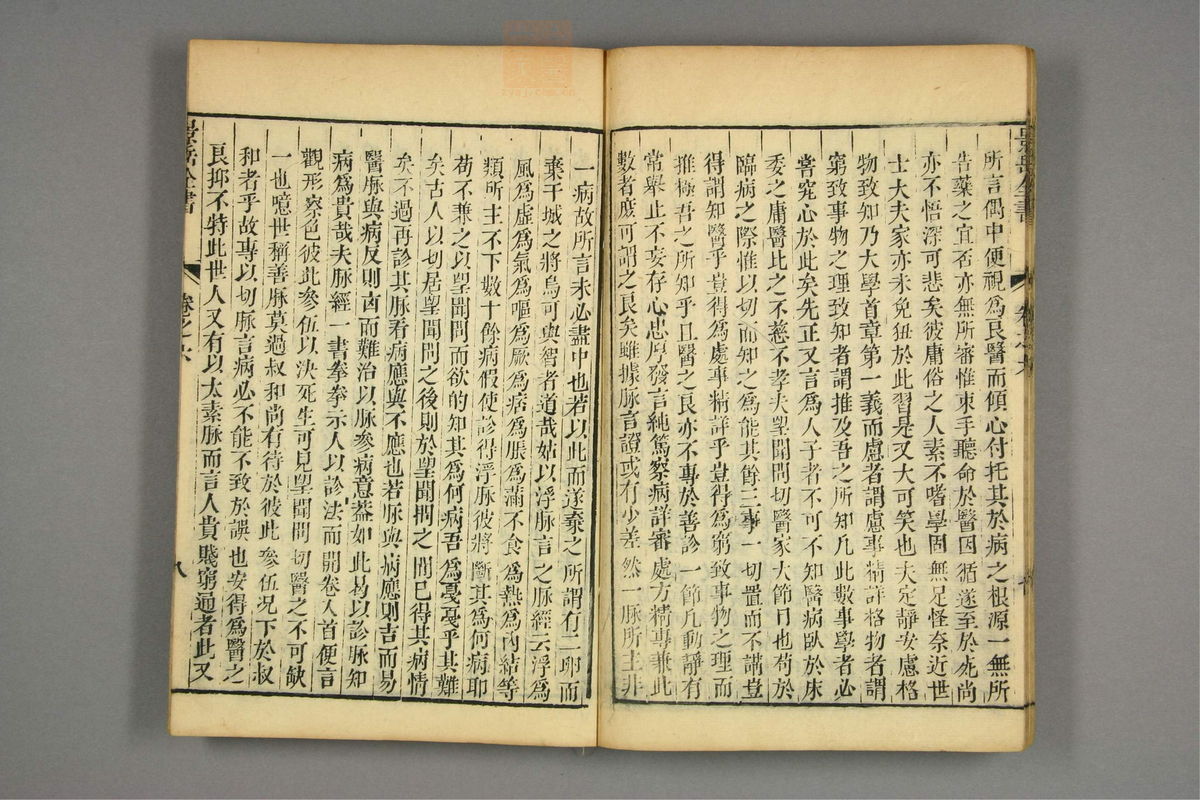 所言偶中便視爲良醫而傾心付托其於病之根源一無所
告藥之宜否亦無所審惟束手聽命於醫因循遂至於死尚
亦不悟深可悲矣彼庸俗之人素不嗜學固無足怪奈近世
士大夫家亦未免狃於此習是又大可笑也夫定靜安慮格
物致知乃大學首章第一義而慮者謂慮事精詳格物者謂
窮致事物之理致知者謂推及吾之所知凡此數事學者必
嘗究心於此矣先正又言爲人子者不可不知醫病臥於床
委之庸醫比之不慈不孝夫望聞問切醫家大節目也苟於
臨病之際惟以切而知之爲能其餘三事一切置而不講豈
得謂知醫乎豈得爲處事精詳乎豈得爲窮致事物之理而
推極吾之所知乎且醫之良亦不專於善診一節凡動靜有
常舉止不妄存心忠厚發言純篤察病詳審處方精專兼此
數者庶可謂之良矣雖據脉言證或有少差然一脉所主非
一病故所言未必盡中也若以此而遂棄之所謂以二卵而
棄干城之將烏可與智者道哉姑以浮脉言之脉經云浮爲
風爲虛爲氣爲嘔爲厥爲痞爲脹爲滿不食爲熱爲內結等
類所主不下數十餘病假使診得浮脉彼將斷其爲何病耶
苟不兼之以望聞問而欲的知其爲何病吾爲戞戞乎其難
矣古人以切居望聞問之後則於望聞問之間已得其病情
矣不過再診其脉看病應與不應也若脉與病應則吉而易
醫脉與病反則凶而難治以脉參病意葢如此曷以診脉知
病爲貴哉夫脉經一書拳拳示人以診法而開卷入首便言
觀形察色彼此參伍以决死生可見望聞問切醫之不可缺
一也噫世稱善脉莫過叔和尚有待於彼此參伍况下於叔
和者乎故專以切脉言病必不能不致於誤也安得爲醫之
良抑不特此世人又有以太素脉而言人貴賤窮通者此又
景岳全書
卷之六
八